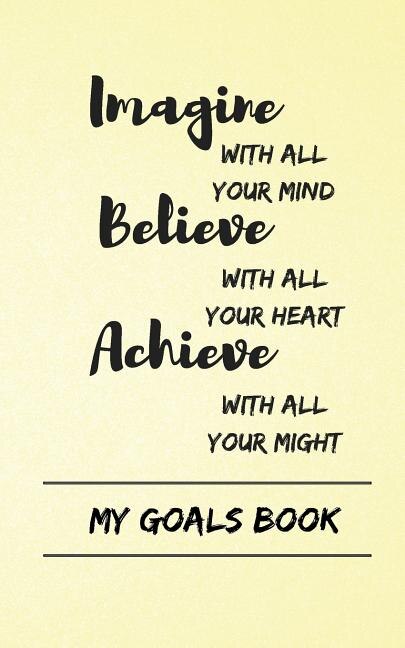 Imagine
WITH ALL
YOUR MIND
Believe
WITH ALL
YOUR HEART
Achieve
WITH ALL
YOUR MIGHT
MY GOALS BOOK